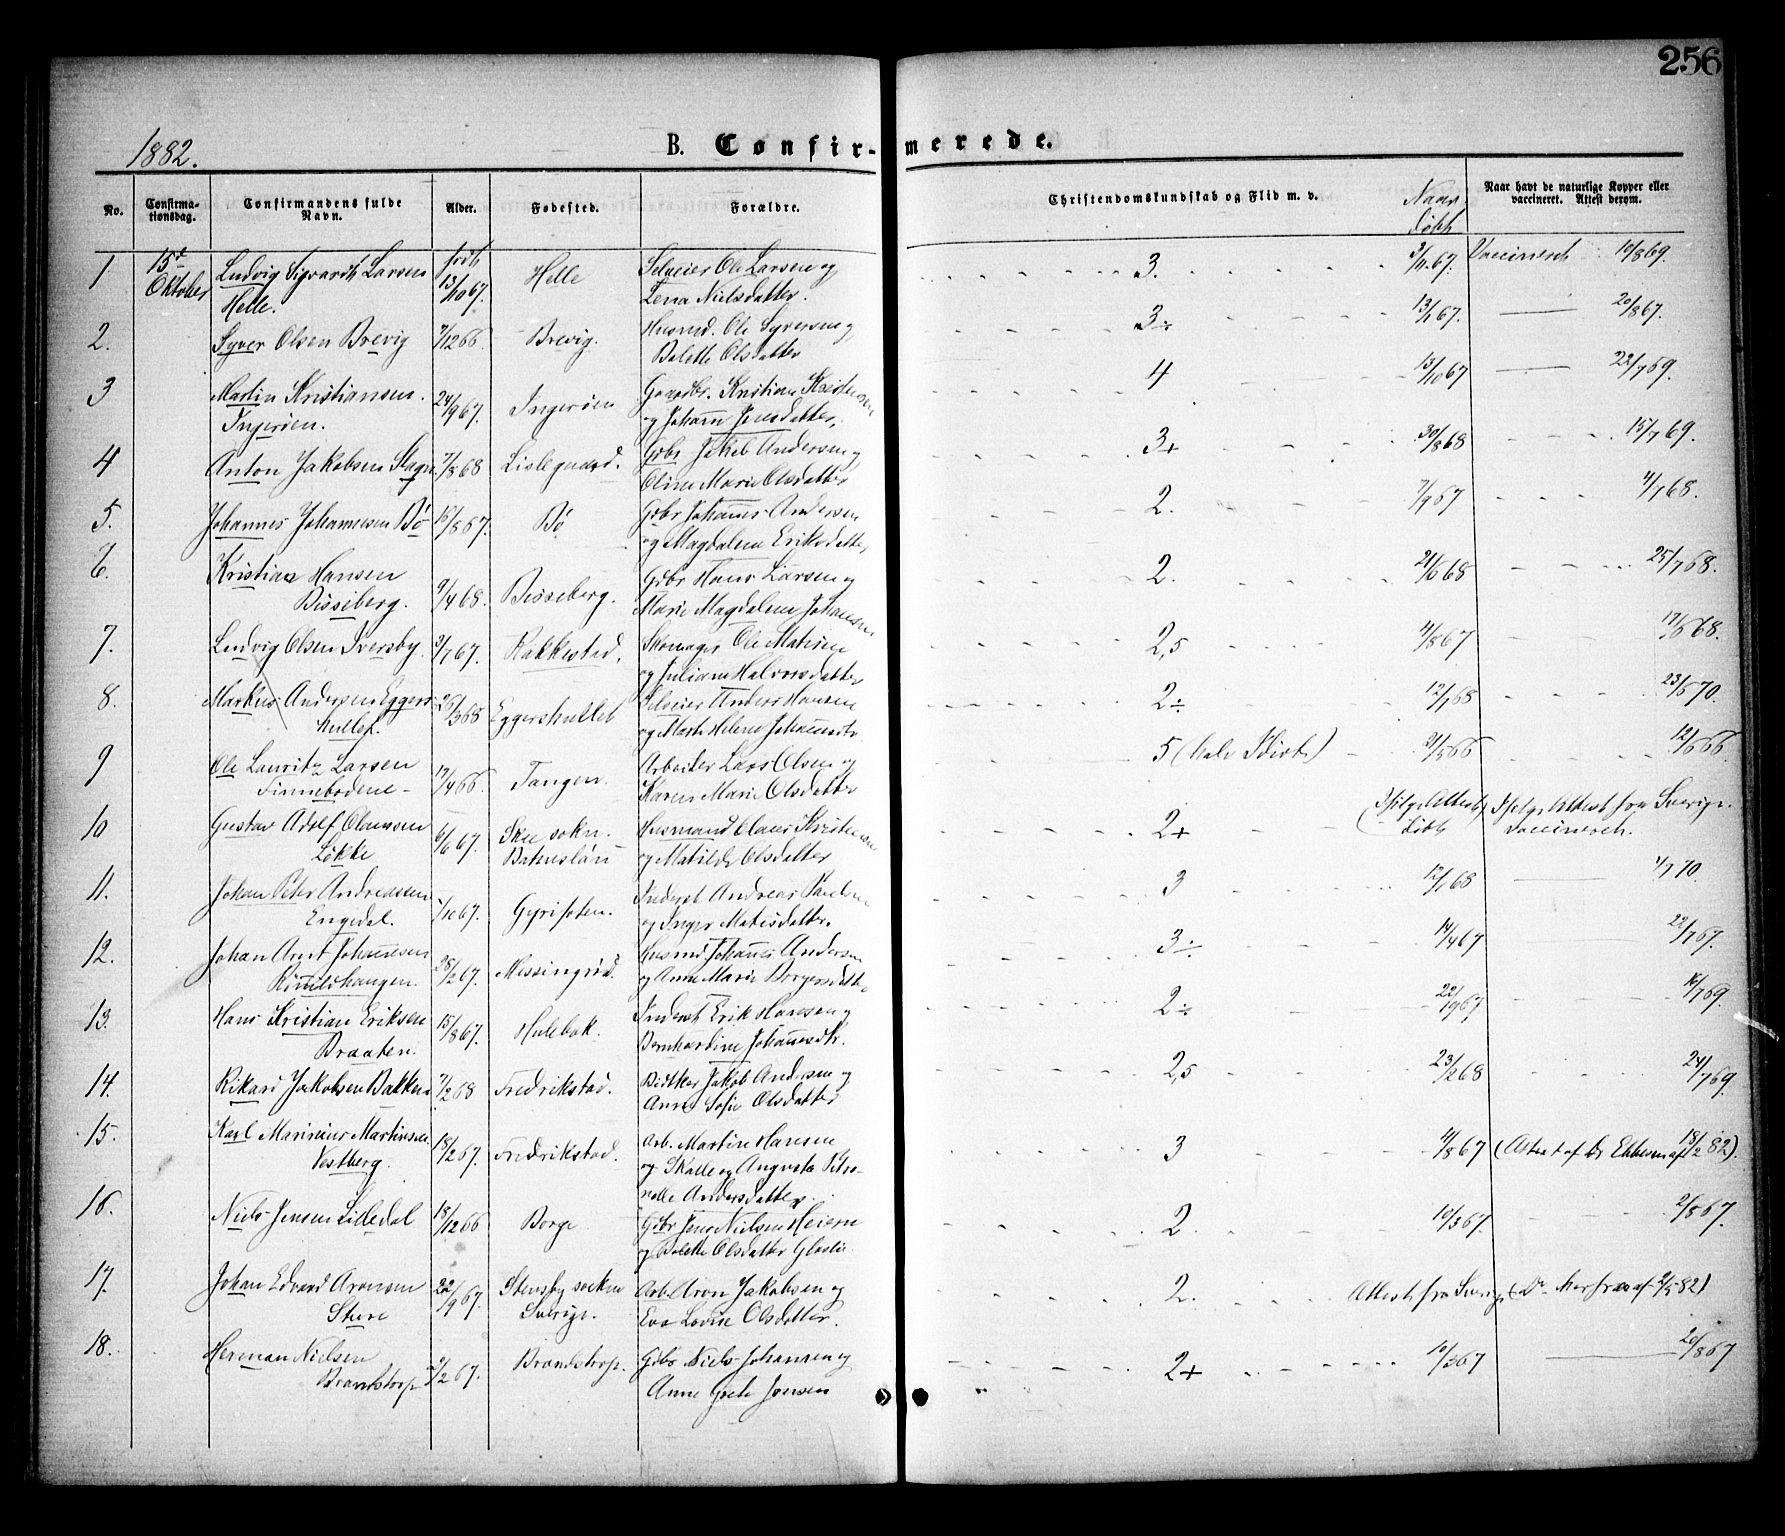 256
1882.
B. Confirmerede.
No.
Confirma-
tionsdag.
Confirmandens fulde
Navn.
Alder.
Fødested.
Forældre.
Christendomskundskab og Flid m. v.
Naar
døbt
Naar havt de naturlige Kopper eller
vaccineret. Attest derom.
1 15de Ludvig Sigvardt Larsen født Helle Selveier Ole Larsen og 3. 3/11 67. Vaccineret 10/8 69.
Oktober Helle. 13/10 67. Lena Nielsdatter.
2. Syver Olsen Brevig 7/12 66. Brevig. Husmd. Ole Syversen og 3÷ 13/1 67. 20/8 67.
Bolette Olsdatter
3 Martin Kristiansen 24/9 67. Ingerøen Gaardbr. Kristian 4 13/10 67 22/7 69.
Ingerøen. og Johann Jensdatter.
4 Anton Jakobsen 7/8 68 Lislegaard. Gbr. Jakob Andersen og 3+ 30/8 68 15/7 69.
Oline Marie Olsdatter
5. Johannes Johannesen Bö 16/8 67. Bö Gdbr Johannes Andersen 2. 7/9 67 4/7 68.
og Magdalena Eriksdatter
6. Kristian Hansen 9/4 68. Bisseberg. Gdbr Hans Larsen og 2. 21/6 68 25/7 68.
Bisseberg. Marie Magdalena Johannesen
7. Ludvig Olsen Iversby 3/7 67. Rakkestad. Skomager Ole Matisen 2,5 4/8 67 17/6 68.
og Juliane Halvorsdatter
8. Markus Andersen Eggers- 26/3 68 Eggershullet Selveier Anders Hansen 2÷ 12/7 68 23/6 70.
hullet. og Marte Helene Johannesdtr
9 Ole Lauritz Larsen 17/4 66. Tangen. Arbeider Lars Olsen og 5 (halv Idiot) 21/5 66 12/6 66.
Finnebodene Karen Marie Olsdatter
10 Gustav Adolf Olaussen 6/6 67. Skee sokn. Husmand Olaus Kristensen 2+ (Ifølge Attest Ifølge Attest fra Sverige.
Løkke og Matilde Olsdatter døbt vaccineret.
11. Johan Peter Andreassen /10 67. Inderst Andreas Paulsen 3 12/1 68 1/7 70.
Engedal. og Inger Matisdatter.
12. Johan Arnt Johannesen 28/2 67. Messingrød. Husmd Johannes Andersen 3÷ 14/4 67 22/7 67.
og Anne Marie Borgersdatter
13. Hans Kristian Eriksen 15/8 67. Hulebak. Inderst Erik Hansen og 2÷ 22/9 67 16/7 69.
Braaten. Bernhardine Johannesdtr.
14. Rikard Jakobsen Bakken 7/2 68 Fredrikstad. Bødtker Jakob Andersen og 2,5 23/2 68 24/7 69.
Anne Sofie Olsdatter
15. Karl Marinius Martinsen 18/2 67. Fredrikstad. Arb. Martin Hansen 3 4/8 67 (Attest af Dr Ebbesen af 18/2 82).
Vestberg. og Augusta Petro-
nelle Andersdatter.
16. Niels Jensen Lilledal 18/12 66 Borge Gdbr Jens Nielsen Heiern 2. 10/3 67. 2/8 67.
og Bolette Olsdatter
17. Johan Edvard Aronsen 22/9 67. Stensby socken Arb. Aron Jakobsen og 2. Attest fra Sverige (Dr 82)
Sture Sverige. Eva Lovise Olsdatter.
18. Herman Nielsen 2/2 67. Brandstrop. Gdbr Niels Johansen og 2+ 10/3 67 20/8 67
Brandstrop Anne Grete Jensen